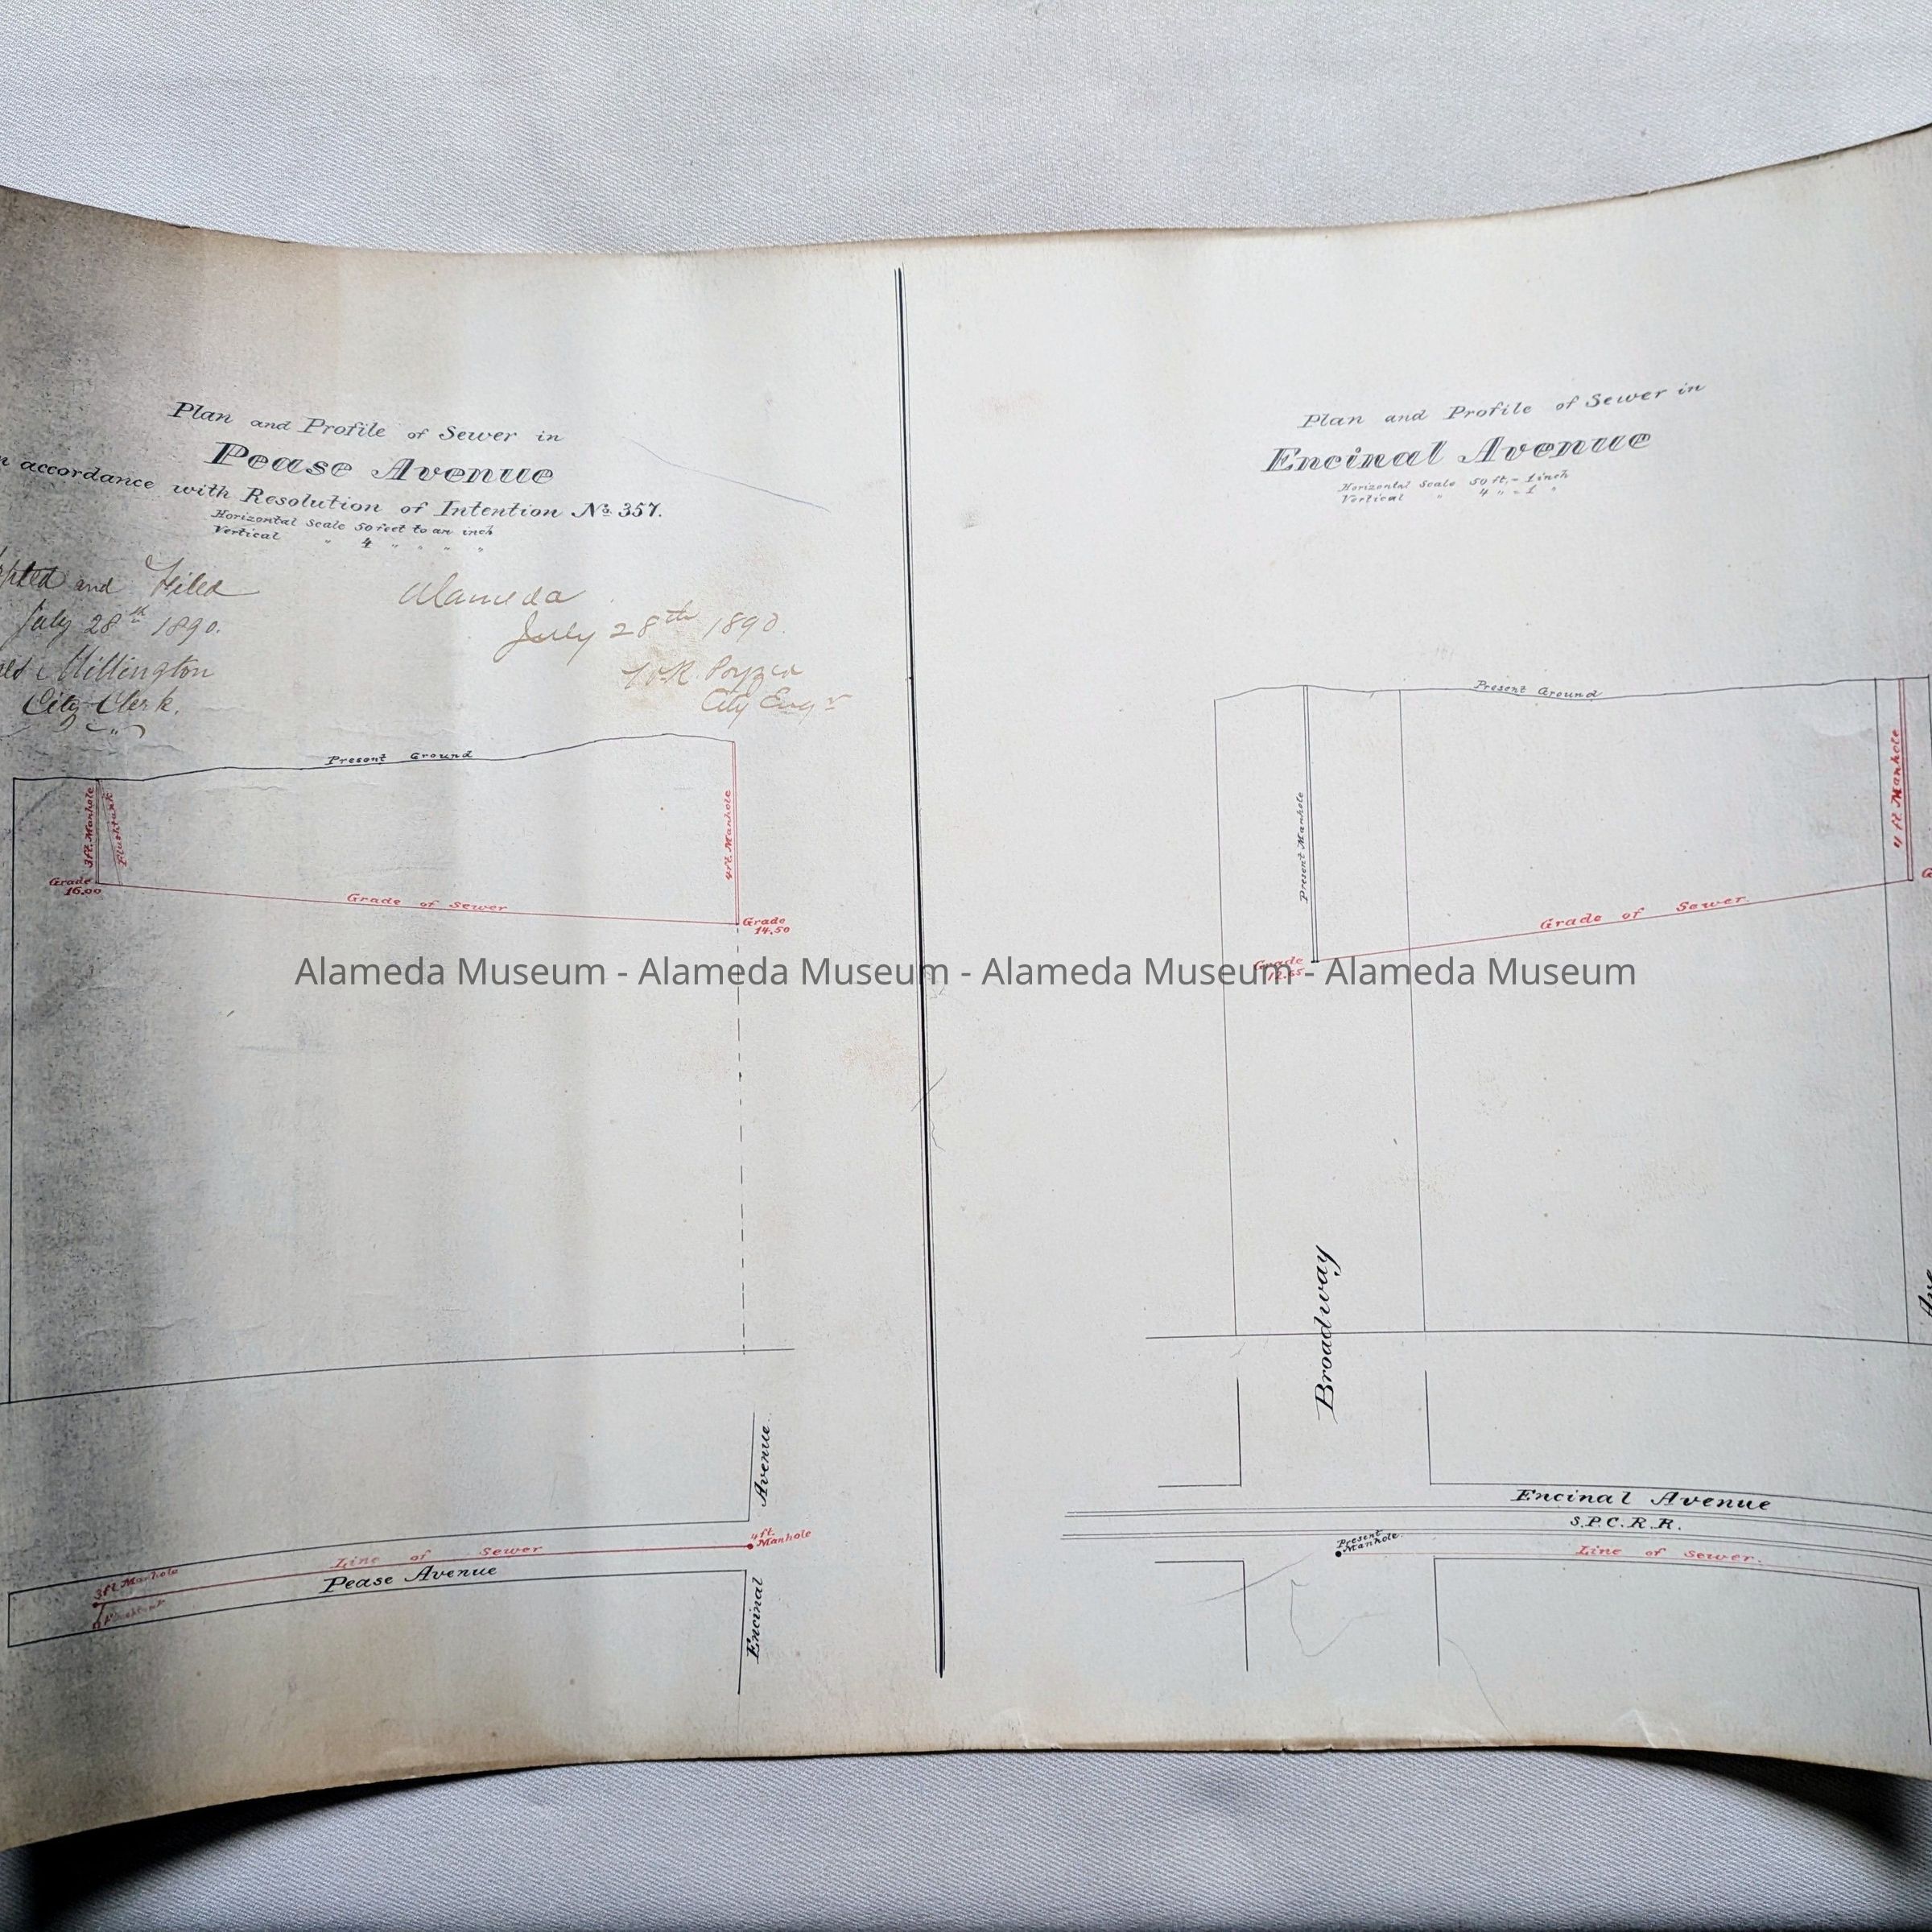 Plan and Profile of Sewer in
Pease Avenue
accordance with Resolution of Intention No. 357.
Horizontal Scale 50 feet to an inch
Vertical " 4 " " " "
and Filed
July 28th 1890.
Millington
City Clerk.
Alameda
July 28th 1890.
City Engr
Present Ground
3 ft. Manhole
Flushtank
4 ft. Manhole
Grade
16.00
Grade of Sewer
Grade
14.50
Avenue
4 ft.
Manhole
Line of Sewer
3 ft. Manhole
Pease Avenue
Encinal
Plan and Profile of Sewer in
Encinal Avenue
Horizontal Scale 50 ft. = 1 inch
Vertical " 4 " = 1 "
Present Ground
Present Manhole
4 ft. Manhole
Grade of Sewer
Grade
12.65
Broadway
Ave
Encinal Avenue
S.P.C.R.R.
Present
Manhole.
Line of Sewer.
Alameda Museum - Alameda Museum - Alameda Museum - Alameda Museum